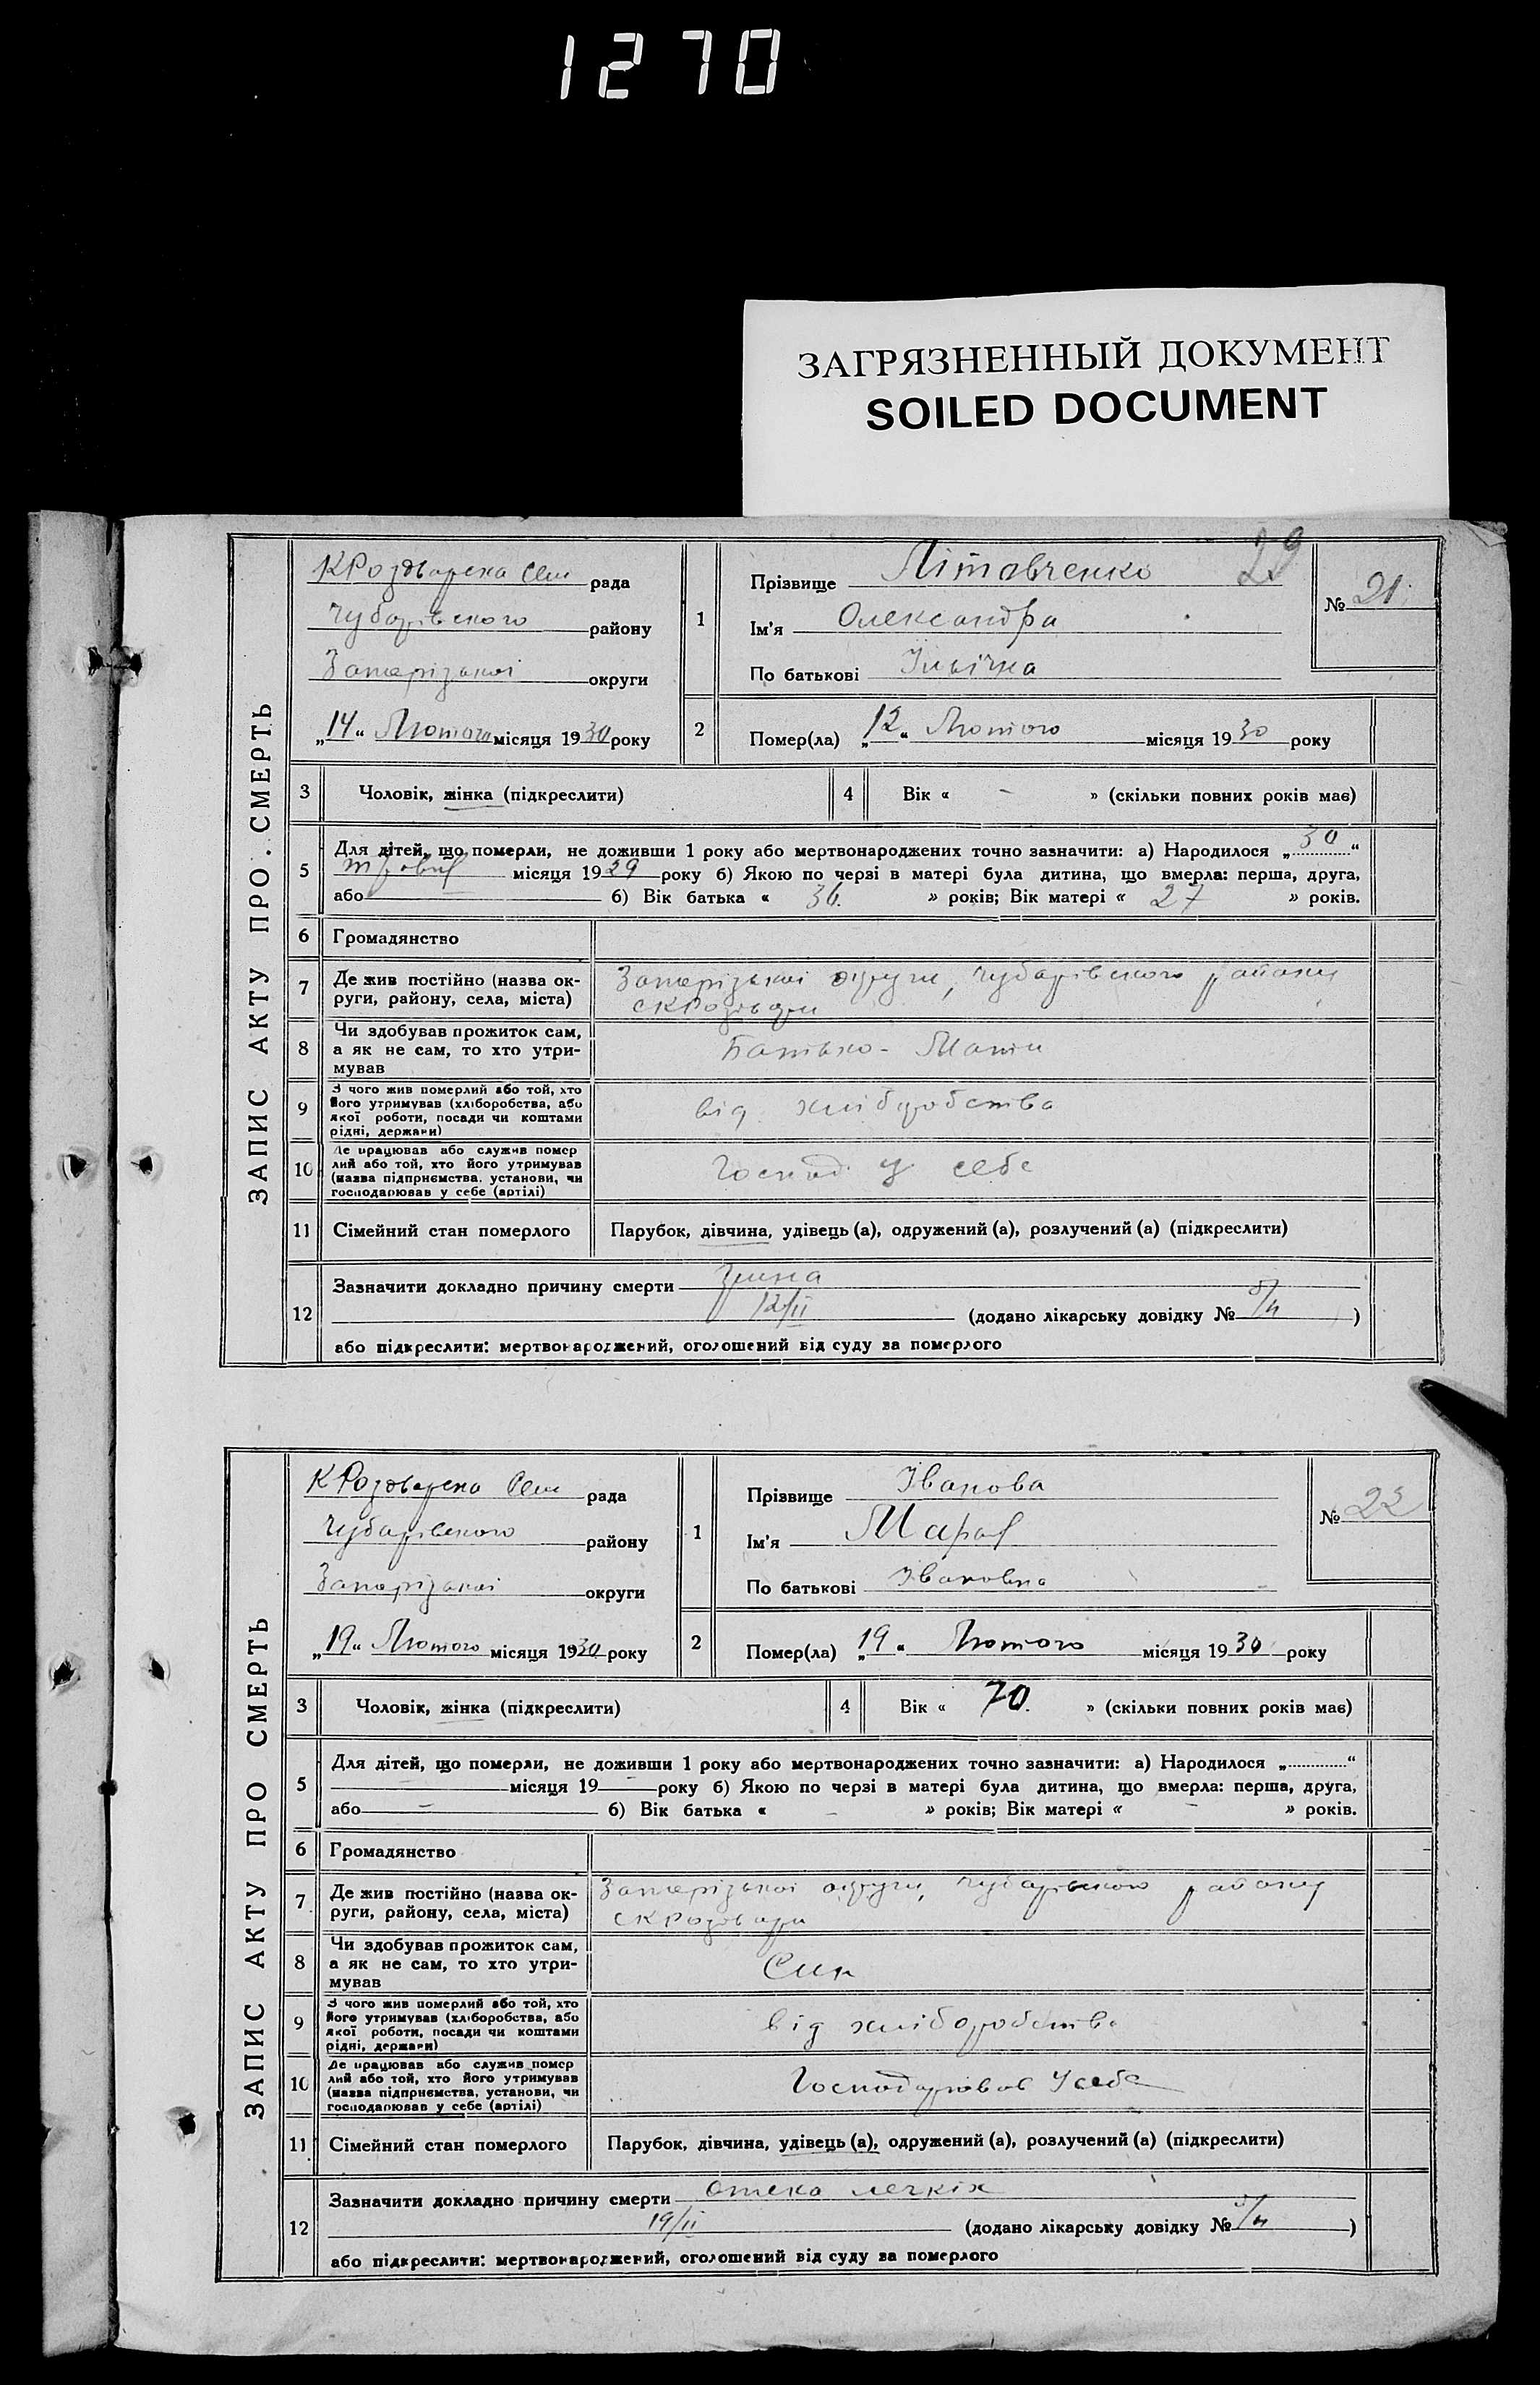 1270
ЗАГРЯЗНЕННЫЙ ДОКУМЕНТ
SOILED DOCUMENT
29
ЗАПИС АКТУ ПРО СМЕРТЬ
КРоздорска Сель рада
Чубарівського району
Запорізької округи
„14“ Лютого місяця 1930 року
1
Прізвище Літовченко
Ім'я Олександра
По батькові Ільїчна
№ 21
2
Помер(ла) „12“ Лютого місяця 1930 року
3 Чоловік, жінка (підкреслити)
4 Вік « - » (скільки повних років має)
5 Для дітей, що померли, не доживши 1 року або мертвонароджених точно зазначити: а) Народилося „30“
місяця 1929 року б) Якою по черзі в матері була дитина, що вмерла: перша, друга,
або б) Вік батька « 36. » років; Вік матері « 27 » років.
6 Громадянство
7 Де жив постійно (назва ок-
руги, району, села, міста)
Запорізької округи, Чубарівського району
8 Чи здобував прожиток сам,
а як не сам, то хто утри-
мував
Батько - Мати
9 З чого жив померлий або той, хто
його утримував (хліборобства, або
якої роботи, посади чи коштами
рідні, держави)
від хліборобства
10 Де працював або служив помер
лий або той, хто його утримував
(назва підприємства, установи, чи
господарював у себе (артілі)
Господ. у себе
11 Сімейний стан померлого
Парубок, дівчина, удівець (а), одружений (а), розлучений (а) (підкреслити)
12 Зазначити докладно причину смерти
12/II (додано лікарську довідку № б/н )
або підкреслити: мертвонароджений, оголошений від суду за померлого
ЗАПИС АКТУ ПРО СМЕРТЬ
КРоздорска Сель рада
Чубарівського району
Запорізької округи
„19“ Лютого місяця 1930 року
1
Прізвище Іванова
Ім'я Марія
По батькові Івановна
№ 22
2
Помер(ла) „19“ Лютого місяця 1930 року
3 Чоловік, жінка (підкреслити)
4 Вік « 70. » (скільки повних років має)
5 Для дітей, що померли, не доживши 1 року або мертвонароджених точно зазначити: а) Народилося „ “
місяця 19 — року б) Якою по черзі в матері була дитина, що вмерла: перша, друга,
або — б) Вік батька « - » років; Вік матері « - » років.
6 Громадянство
7 Де жив постійно (назва ок-
руги, району, села, міста)
Запорізької округи, Чубарівського району
8 Чи здобував прожиток сам,
а як не сам, то хто утри-
мував
Син
9 З чого жив померлий або той, хто
його утримував (хліборобства, або
якої роботи, посади чи коштами
рідні, держави)
від хліборобства
10 Де працював або служив помер
лий або той, хто його утримував
(назва підприємства, установи, чи
господарював у себе (артілі)
Господарював у себе
11 Сімейний стан померлого
Парубок, дівчина, удівець (а), одружений (а), розлучений (а) (підкреслити)
12 Зазначити докладно причину смерти отека легкіх
19/II (додано лікарську довідку № б/н )
або підкреслити: мертвонароджений, оголошений від суду за померлого